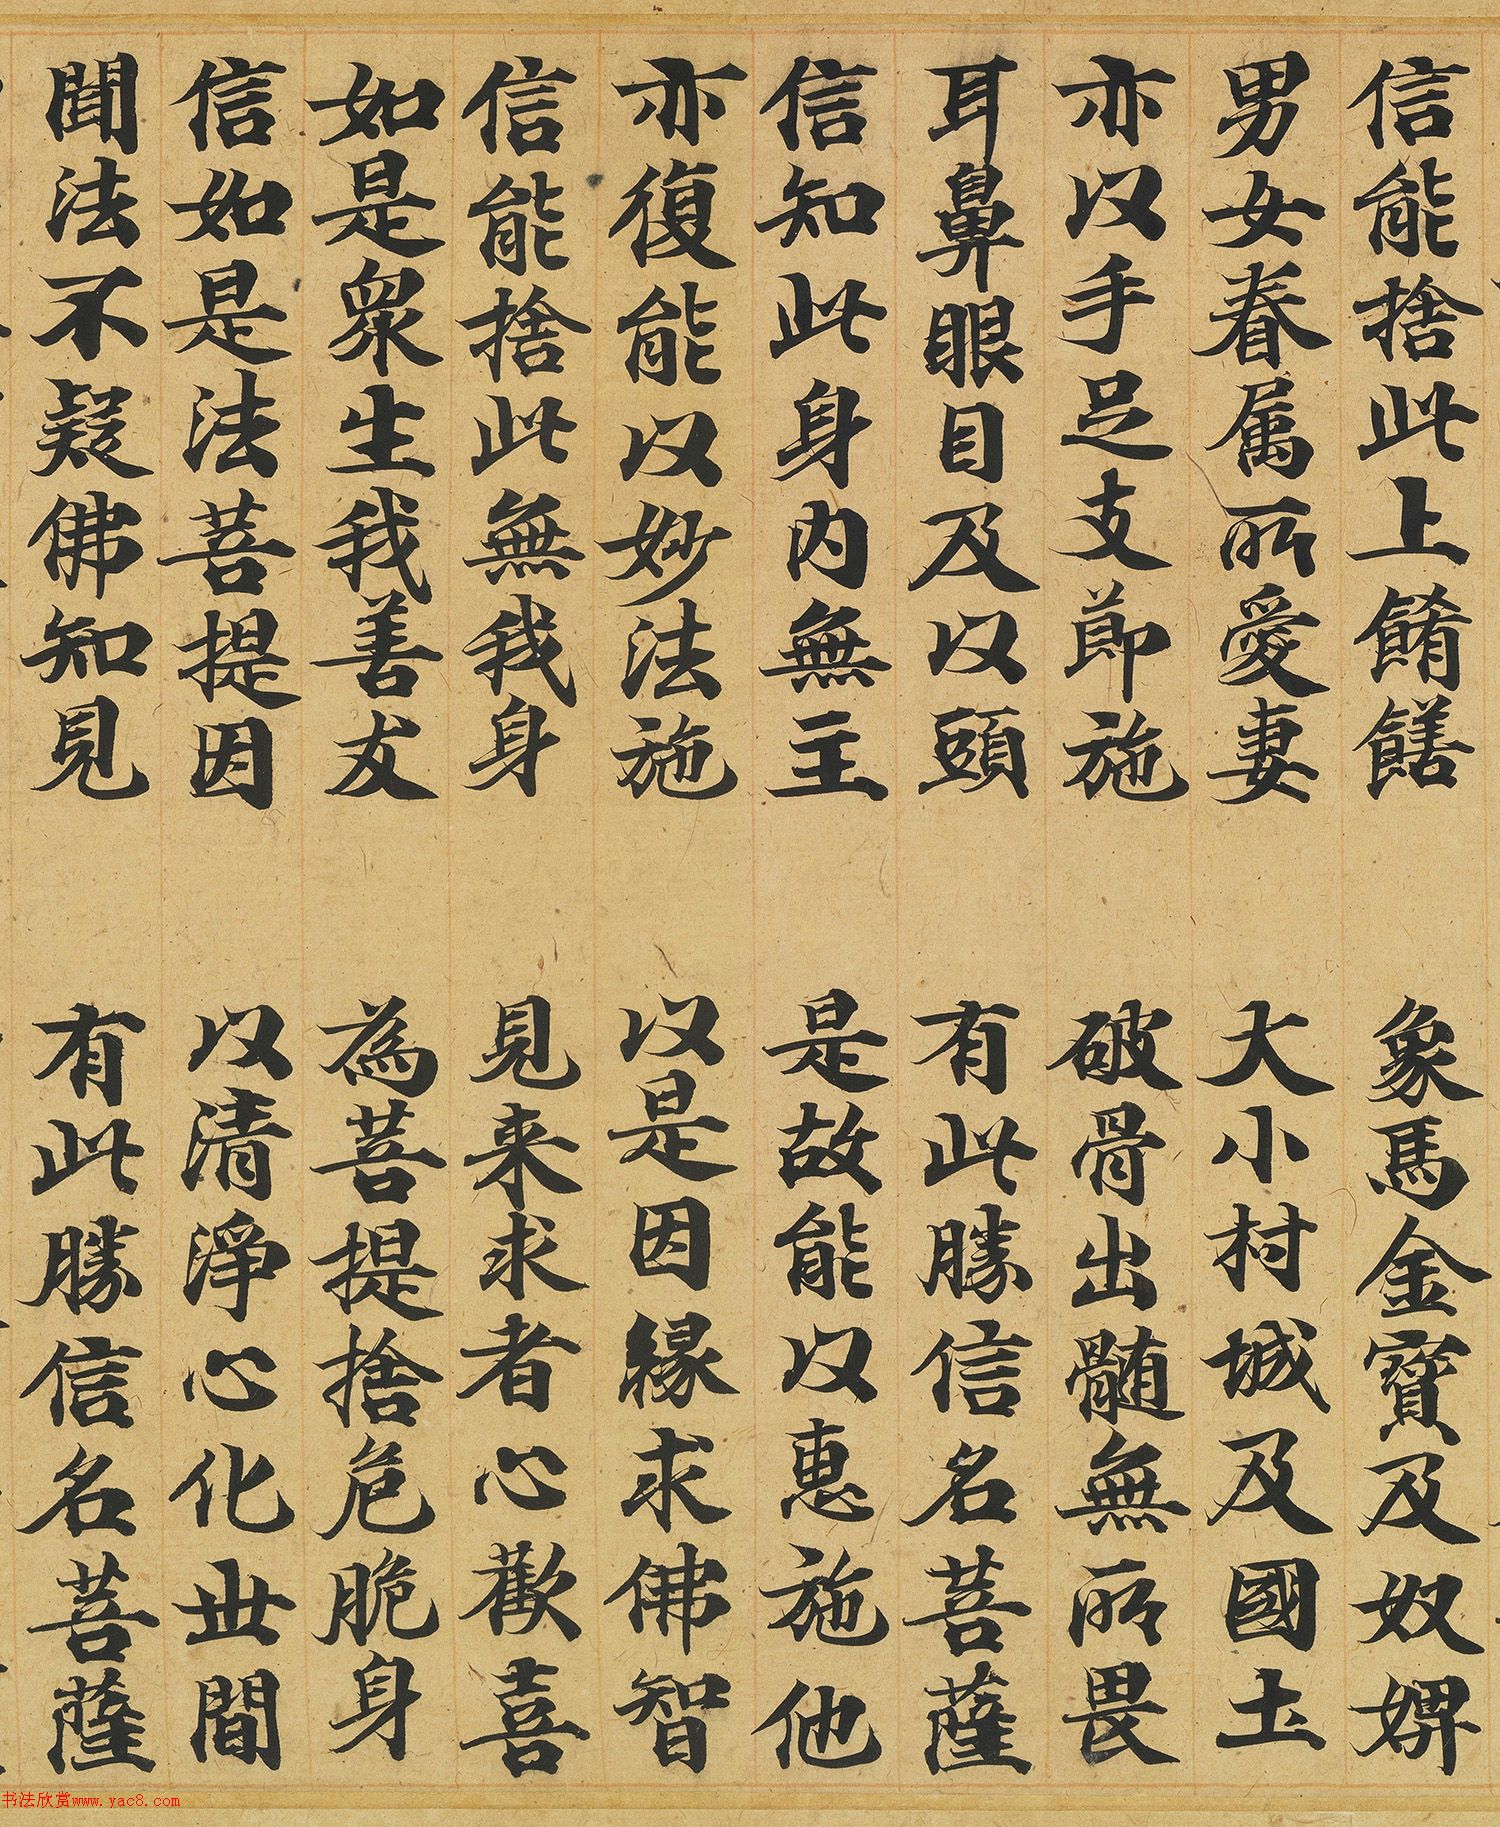 信能捨此上餚饍　象馬金寶及奴婢
男女眷属所愛妻　大小村城及國土
亦以手足支節施　破骨出髄無所畏
耳鼻眼目及以頭　有此勝信名菩薩
信知此身内無主　是故能以惠施他
亦復能以妙法施　以是因縁求佛智
信能捨此無我身　見来求者心歡喜
如是衆生我善友　為菩提捨危脆身
信如是法菩提因　以清淨心化世間
聞法不疑佛知見　有此勝信名菩薩
书法欣赏www.yac8.com